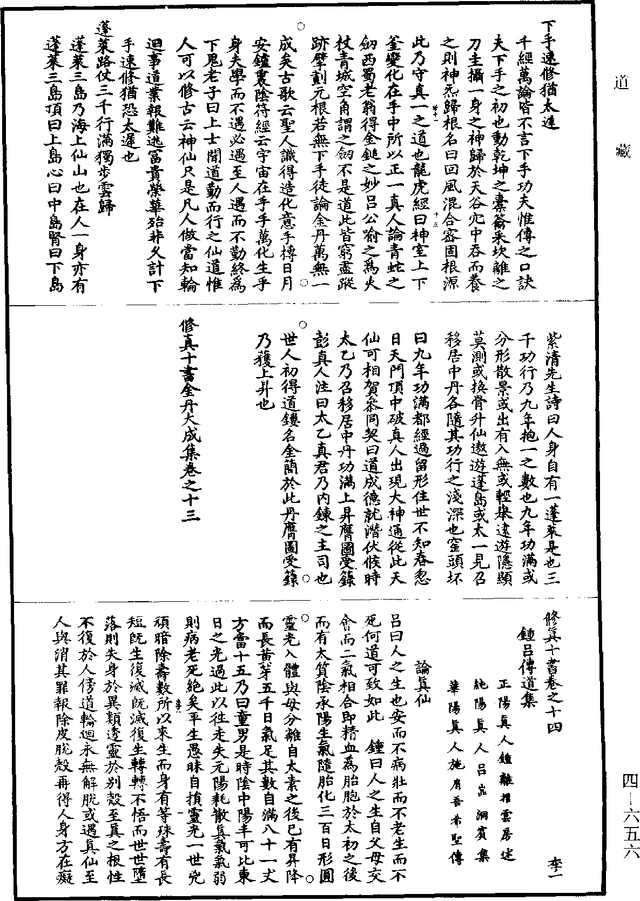 道藏
下手速修猶太遲
千經萬論皆不言下手功夫惟傳之口訣
夫下手之初也動乾坤之橐籥采坎離之
刀圭攝一身之神歸於天谷穴中吞而養
之則神炁歸根名曰回風混合密固根源
此乃守真一之道也龍虎經曰神室上下
釜變化在手中所以正一真人論青蛇之
劍西蜀老翁得金鎚之妙呂公喻之為火
杖青城空角謂之劍不是道此皆窮盡蹤
跡擘劃元根若無下手徒論金丹萬無一
成矣古歌云聖人識得造化意手摶日月
安鑪裏陰符經云宇宙在乎手萬化生乎
身夫學而不遇必遇至人遇而不勤終為
下鬼老子曰上士聞道勤而行之仙道惟
人可以修古云神仙只是凡人做當知輪
迴事道業報難逃富貴榮華殆非久計下
手速修猶恐太遲也
蓬萊路仗三千行滿獨步雲歸
蓬萊三島乃海上仙山也在人一身亦有
蓬萊三島頂曰上島心曰中島腎曰下島
紫清先生詩曰人身自有一蓬萊是也三
千功行乃九年抱一之數也九年功滿或
分形散景或出有入無或輕舉遠遊隱顯
莫測或換骨升仙遨遊蓬島或太一見召
移居中丹各隨其功行之淺深也窑頭坯
曰九年功滿都經過留形住世不知春忽
日天門頂中破真人出現大神通從此天
仙可相賀參同契曰道成德就潛伏俟時
太乙乃召移居中丹功滿上昇膺圖受籙
彭真人注曰太乙真君乃內鍊之主司也
世人初得道鏤名金簡於此丹膺圖受籙
乃獲上昇也
修真十書金丹大成集卷之十三
修真十書卷之十四 李一
鍾呂傳道集
正陽真人鍾離權雲房述
純陽真人呂嵒洞賓集
華陽真人施肩吾希聖傳
論真仙
呂曰人之生也安而不病壯而不老生而不
死何道可致如此 鍾曰人之生自父母交
會而二氣相合即精血為胎胞於太初之後
而有太質陰承陽生氣隨胎化三百日形圓
靈光入體與母分離自太素之後已有昇降
而長黃芽五千日氣足其數自滿八十一丈
方當十五乃曰童男是時陰中陽半可比東
日之光過此以往走失元陽耗散真氣氣弱
則病老死絕矣平生愚昧自損靈光一世兇
頑暗除壽數所以來生而身有等殊壽有長
短既生復滅既滅復生轉轉不悟而世世墮
落則失身於異類透靈於別殼至真之根性
不復於人傍道輪迴永無解脫或遇真仙至
人與消其罪報除皮脫殼再得人身方在癡
四—六五六